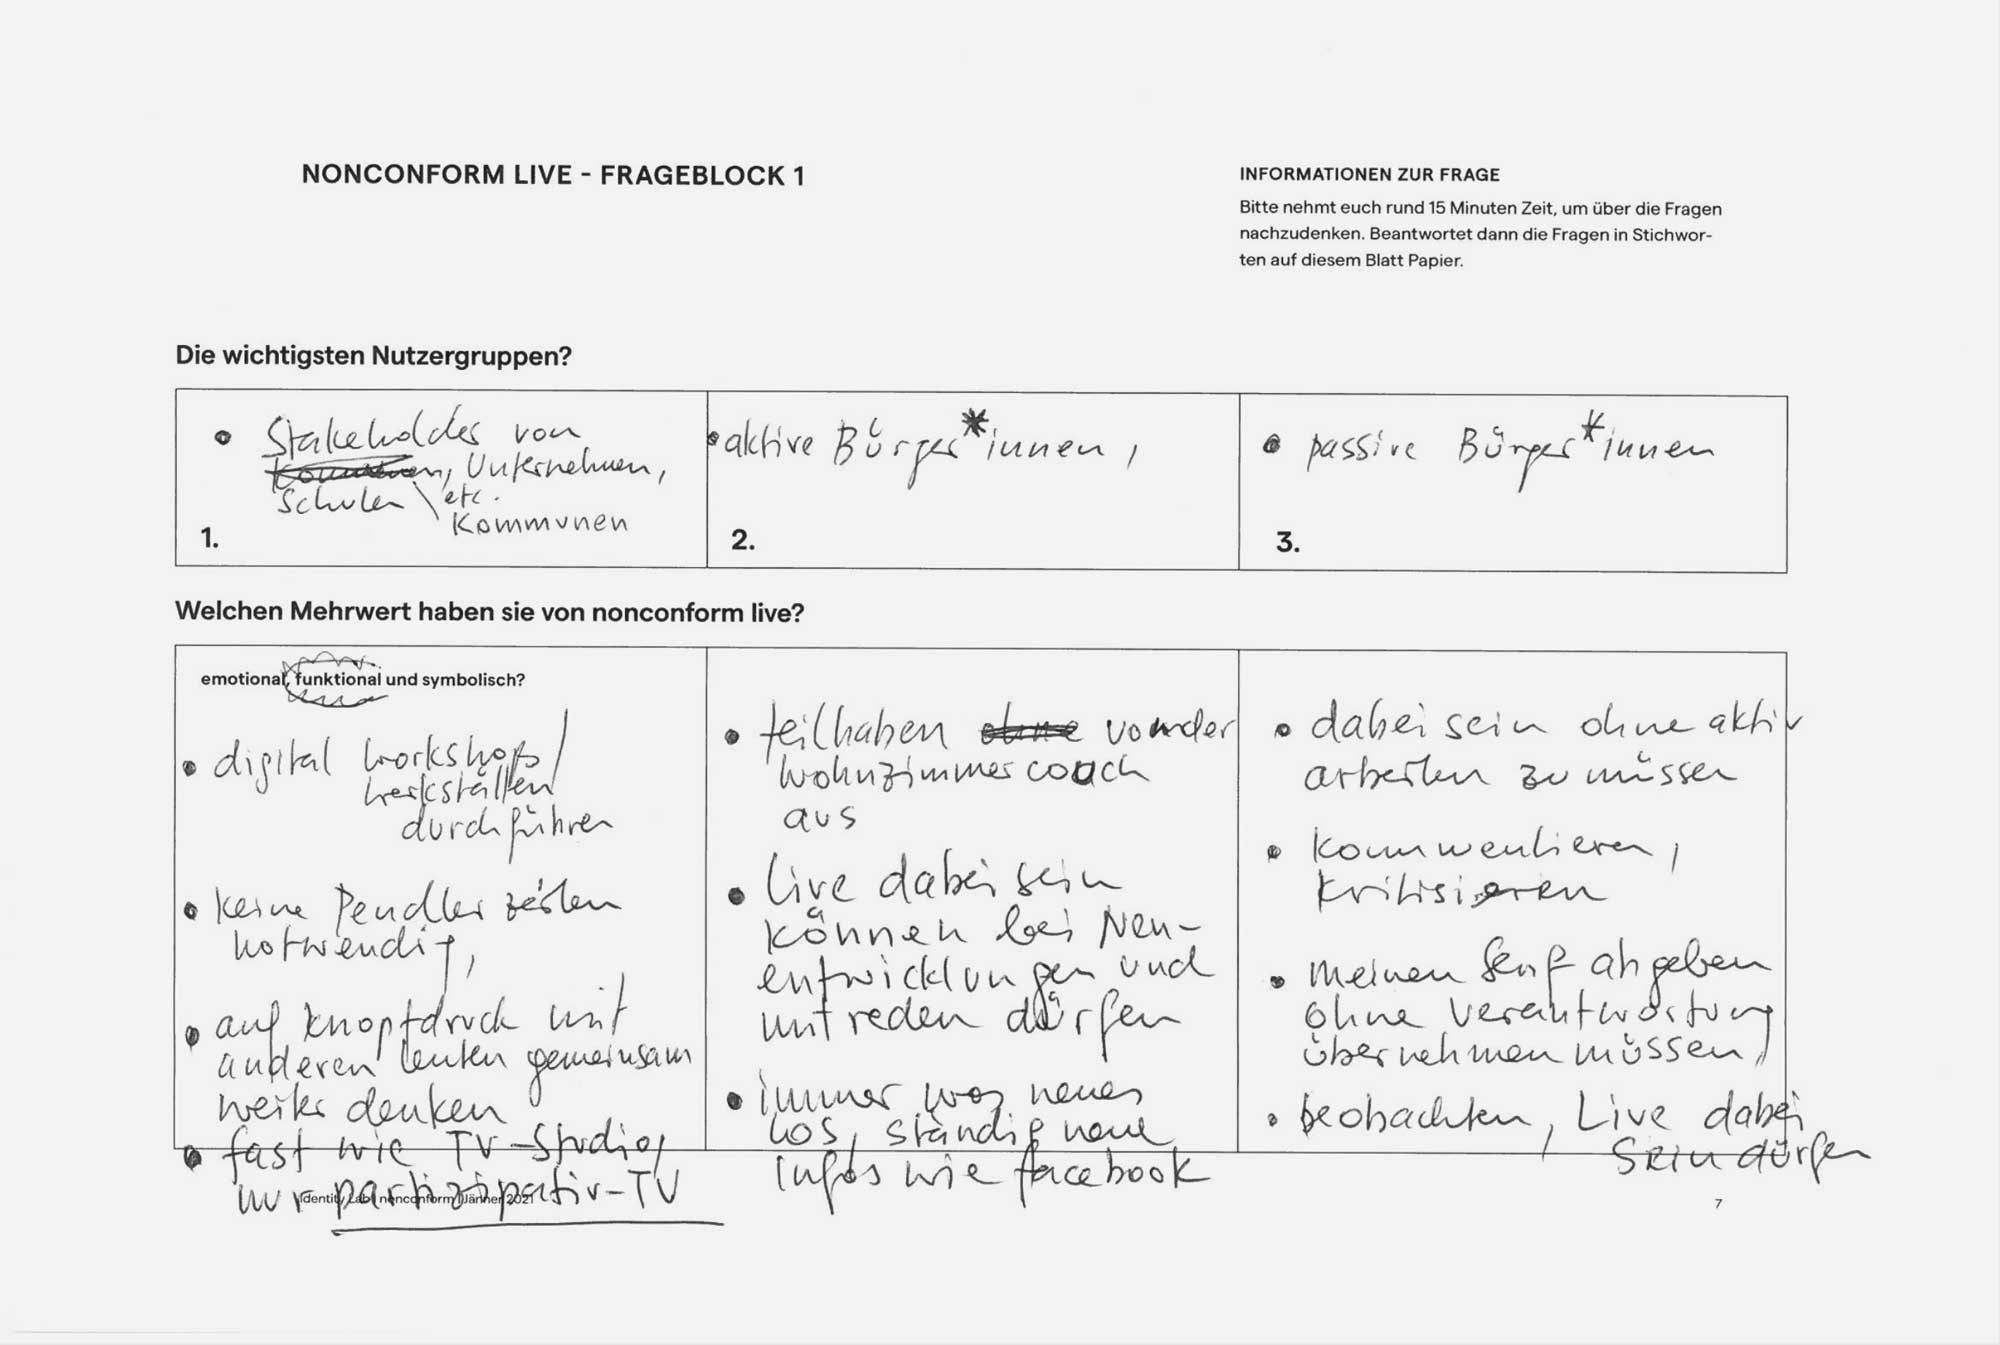 NONCONFORM LIVE - FRAGEBLOCK 1
INFORMATIONEN ZUR FRAGE
Bitte nehmt euch rund 15 Minuten Zeit, um über die Fragen
nachzudenken. Beantwortet dann die Fragen in Stichwor-
ten auf diesem Blatt Papier.
Die wichtigsten Nutzergruppen?
• Stakeholder von
Kommunen, Unternehmen,
Schulen \ etc.
Kommunen
1.
• aktive Bürger*innen,
2.
• passive Bürger*innen
3.
Welchen Mehrwert haben sie von nonconform live?
emotional, funktional und symbolisch?
• digital workshops/
werkstätten
durchführen
• keine Pendler zeiten
notwendig,
• auf knopfdruck mit
anderen leuten gemeinsam
weiter denken
• fast wie TV-Studio,
nur partizipativ-TV
• teilhaben ohne von der
Wohnzimmercouch
aus
• Live dabei sein
können bei Neu-
entwicklungen und
mitreden dürfen
• immer was neues
los, ständig neue
Infos wie facebook
• dabei sein ohne aktiv
arbeiten zu müssen
• kommentieren,
kritisieren
• meinen Senf abgeben
ohne Verantwortung
übernehmen müssen,
• beobachten, Live dabei
sein dürfen
Identity Lab | nonconform | Jänner 2021
7